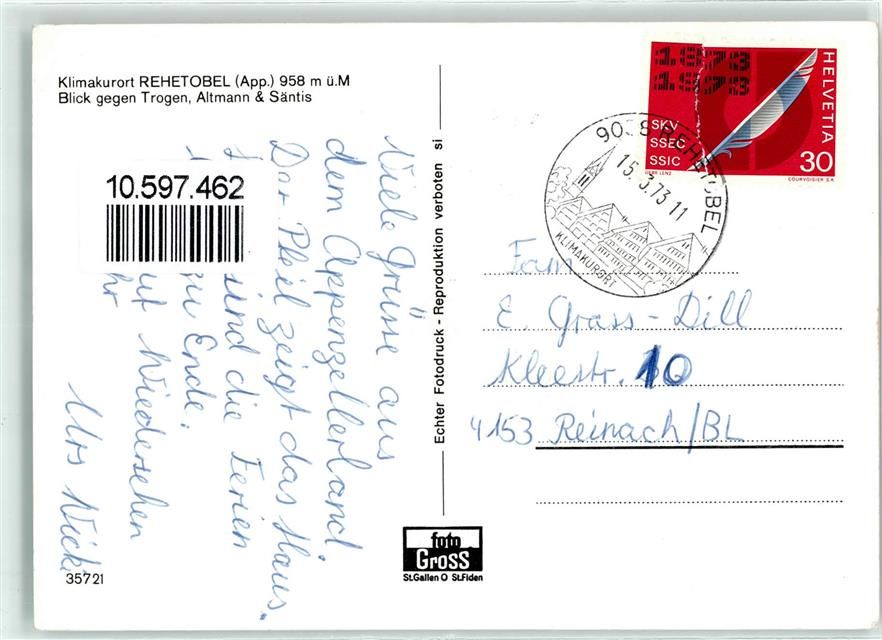 Klimakurort REHETOBEL (App.) 958 m ü.M
Blick gegen Trogen, Altmann & Säntis
Viele Grüsse aus
dem Appenzellerland.
Der Pfeil zeigt das Haus.
sind die Ferien
zu Ende.
Wiedersehen
Ihr
Urs
10.597.462
35721
Echter Fotodruck - Reproduktion verboten si
foto
Gross
St.Gallen O St.Fiden
1873
1973
SKV
SSEC
SSIC
HELVETIA
30
COURVOISIER S.A.
REHETOBEL
15.3.73 11
KLIMAKURORT
Fam
E. Grass-Dill
Kleestr. 10
4153 Reinach/BL